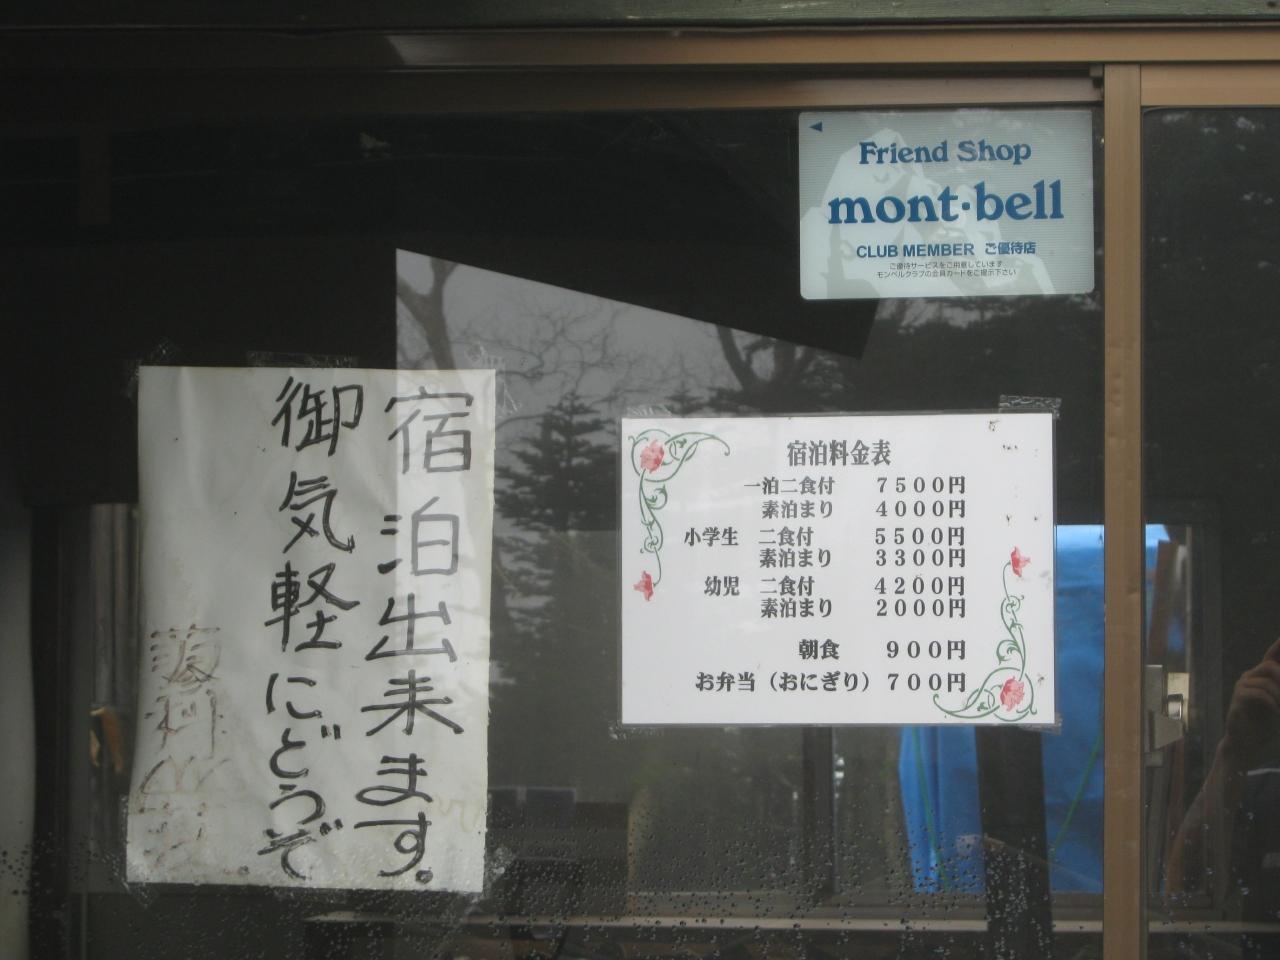 宿泊出来ます。
御気軽にどうぞ
蓼科山荘
Friend Shop
mont·bell
CLUB MEMBER ご優待店
ご優待サービスをご用意しています
モンベルクラブの会員カードをご提示下さい
宿泊料金表
一泊二食付 7500円
素泊まり 4000円
小学生 二食付 5500円
素泊まり 3300円
幼児 二食付 4200円
素泊まり 2000円
朝食 900円
お弁当（おにぎり）700円